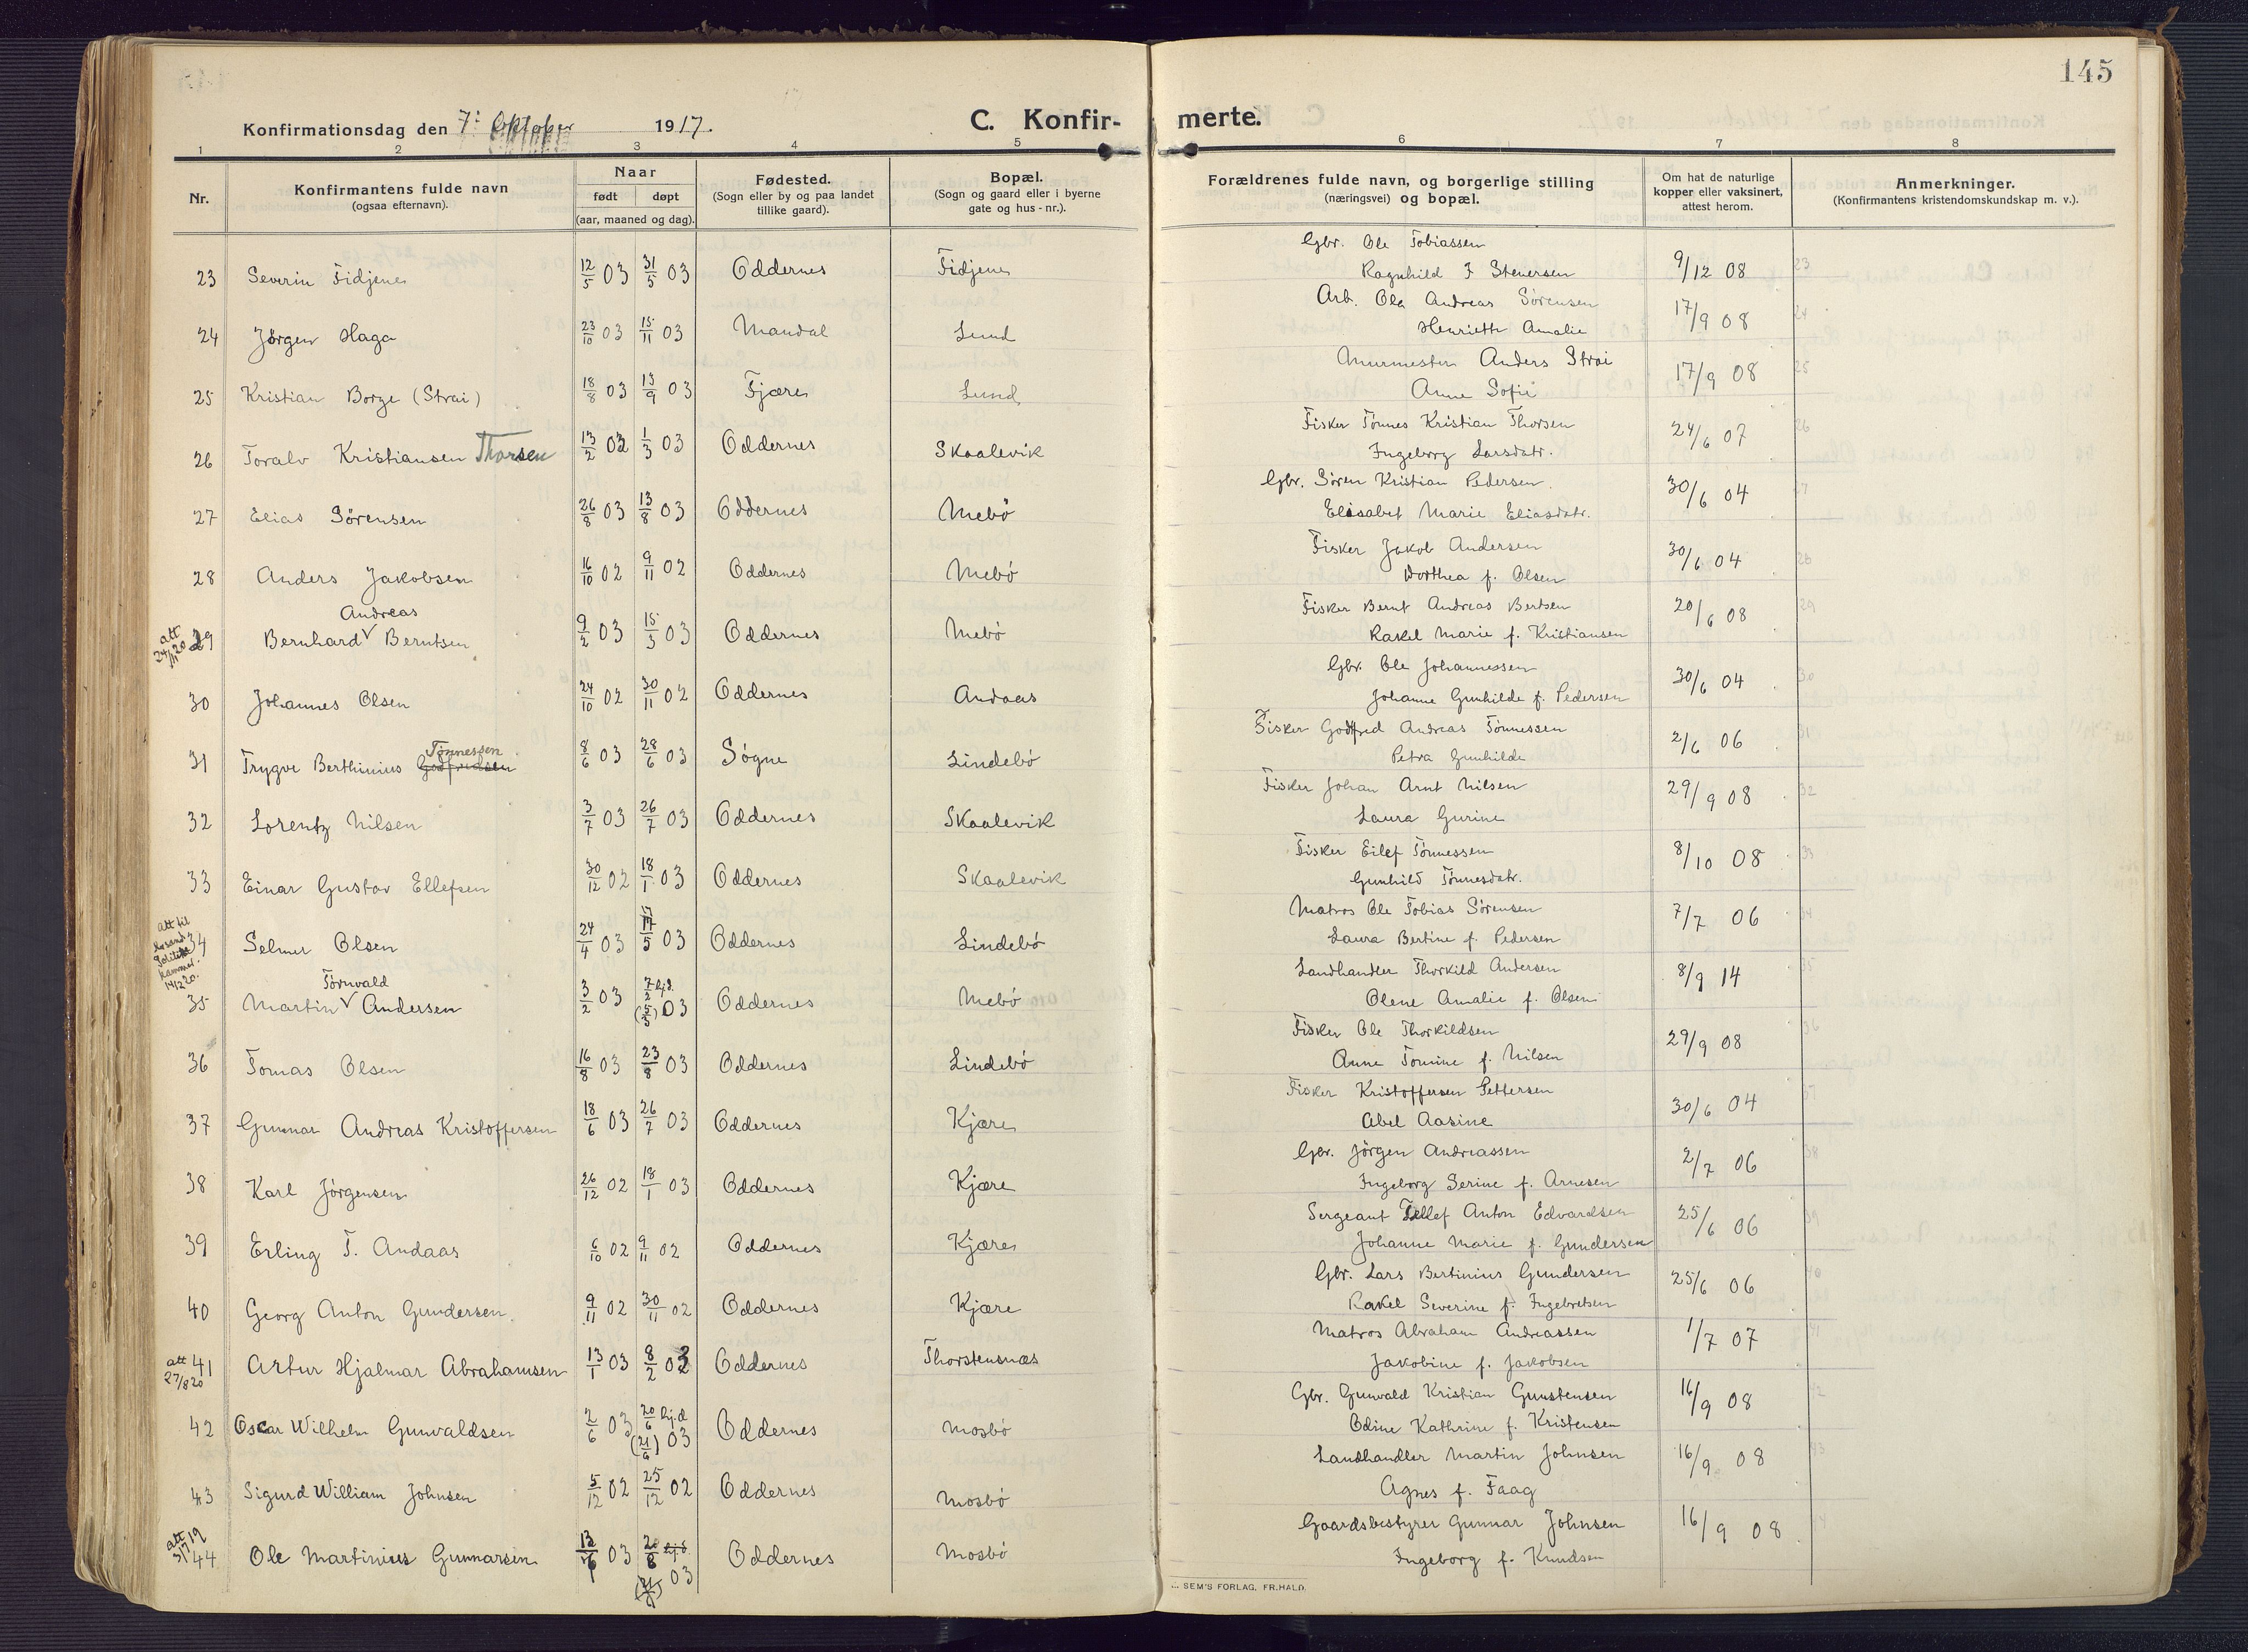 145
Konfirmationsdag den 7: Oktober 1917.
C. Konfir- merte.
1 2 3 4 5 6 7 8
Nr.
Konfirmantens fulde navn
(ogsaa efternavn).
Naar
født døpt
(aar, maaned og dag).
Fødested.
(Sogn eller by og paa landet
tillike gaard).
Bopæl.
(Sogn og gaard eller i byerne
gate og hus-nr.).
Forældrenes fulde navn, og borgerlige stilling
(næringsvei) og bopæl.
Om hat de naturlige
kopper eller vaksinert,
attest herom.
Anmerkninger.
(Konfirmantens kristendomskundskap m. v.).
Gbr. Ole Tobiassen
23 Severin Fidjene 12/5 03 31/5 03 Oddernes Fidjene Ragnhild F Stenersen 9/12 08
Arb. Ola Andreas Sörensen
24 Jörgen Haga 23/10 03 15/11 03 Mandal Lund Henriette Amalie 17/9 08
Murmester Anders Strai
25 Kristian Borge (Strai) 18/8 03 13/9 03 Fjære Lund Anne Sofie 17/9 08
Fisker Tönnes Kristian Thorsen
26 Toralv Kristiansen Thorsen 13/2 02 1/3 03 Oddernes Skaalevik Ingeborg Larsdatr. 24/6 07
Gbr. Sören Kristian Pedersen.
27 Elias Sörensen 26/8 03 13/8 03 Oddernes Mebö Elisabet Marie Eliasdatr. 30/6 04
Fisker Jakob Andersen
28 Anders Jakobsen 16/10 02 9/11 02 Oddernes Mebö Dorthea f. Olsen 30/6 04
Andreas
Fisker Bernt Andreas Bertsen
att 24/11 20
29 Bernhard V Berntsen 9/2 03 15/3 03 Oddernes Mebö Rakel Marie f. Kristiansen 20/6 08
Gbr. Ole Johannessen
30 Johannes Olsen 24/10 02 30/11 02 Oddernes Andaas Johanne Gunhilde f. Pedersen 30/6 04
Fisker Godtfred Andreas Tönnessen
Tönnessen
31 Trygve Berthinius Godfredsen 8/6 03 28/6 03 Sögne Lindebö Petra Gunhilde 2/6 06
Fisker Johan Arnt Nilsen
32 Lorentz Nilsen 3/7 03 26/7 03 Oddernes Skaalevik Laura Gurine 29/9 08
Fisker Eilef Tönnessen
33 Einar Gustav Ellefsen 30/12 02 18/1 03 Oddernes Skaalevik Gunhild Tönnesdatr. 8/10 08
Matros Ole Tobias Sörensen
att til
34 Selmer Olsen 24/4 03 17/5 03 Oddernes Lindebö Laura Bertine f. Pedersen 7/7 06
kammer.
Törnvald
Landhandler Thorkild Andersen
35 Martin V Andersen 3/2 03 7/2 hjd. (5/3) 03 Oddernes Mebö Olene Amalie f. Olsen 8/9 14
Fisker Ole Thorkildsen
36 Tomas Olsen 16/8 03 23/8 03 Oddernes Lindebö Anne Tomine f. Nilsen 29/9 08
Fisker Kristoffersen Pettersen
37 Gunnar Andreas Kristoffersen 18/6 03 26/7 03 Oddernes Kjære Abel Aasine 30/6 04
Gbr. Jörgen Andreassen
38 Karl Jörgensen 26/12 02 18/1 03 Oddernes Kjære Ingeborg Serine f. Arnesen 2/7 06
Sergeant Tellef Anton Edvardsen
39 Erling T. Andaas 6/10 02 9/11 02 Oddernes Kjære Johanne Marie f. Gundersen 25/6 06
Gbr. Lars Bertinius Gundersen
40 Georg Anton Gundersen. 9/11 02 30/11 02 Oddernes Kjære Rakel Severine f. Ingebretsen 25/6 06
Matros Abraham Andreassen
att 27/8 20
41 Artur Hjalmar Abrahamsen 13/1 03 8/2 03 Oddernes Thorstensnæs Jakobine f. Jakobsen 1/7 07
Gbr. Gunvald Kristian Gunstensen
42 Oscar Wilhelm Gunvaldsen 2/6 03 20/6 hjd (21/6) 03 Oddernes Mosbö Odine Kathrine f. Kristensen 16/9 08
Landhandler Martin Johnsen
43 Sigurd William Johnsen 5/12 02 25/12 02 Oddernes Mosbö Agnes f. Faag 16/9 08
Gaardsbestyrer Gunnar Johnsen
att 3/7 19
44 Ole Martinius Gunnarsen 03 hjd. 03 Oddernes Mosbö Ingeborg f. Knudsen 16/9 08
SEM'S FORLAG, FR.HALD.